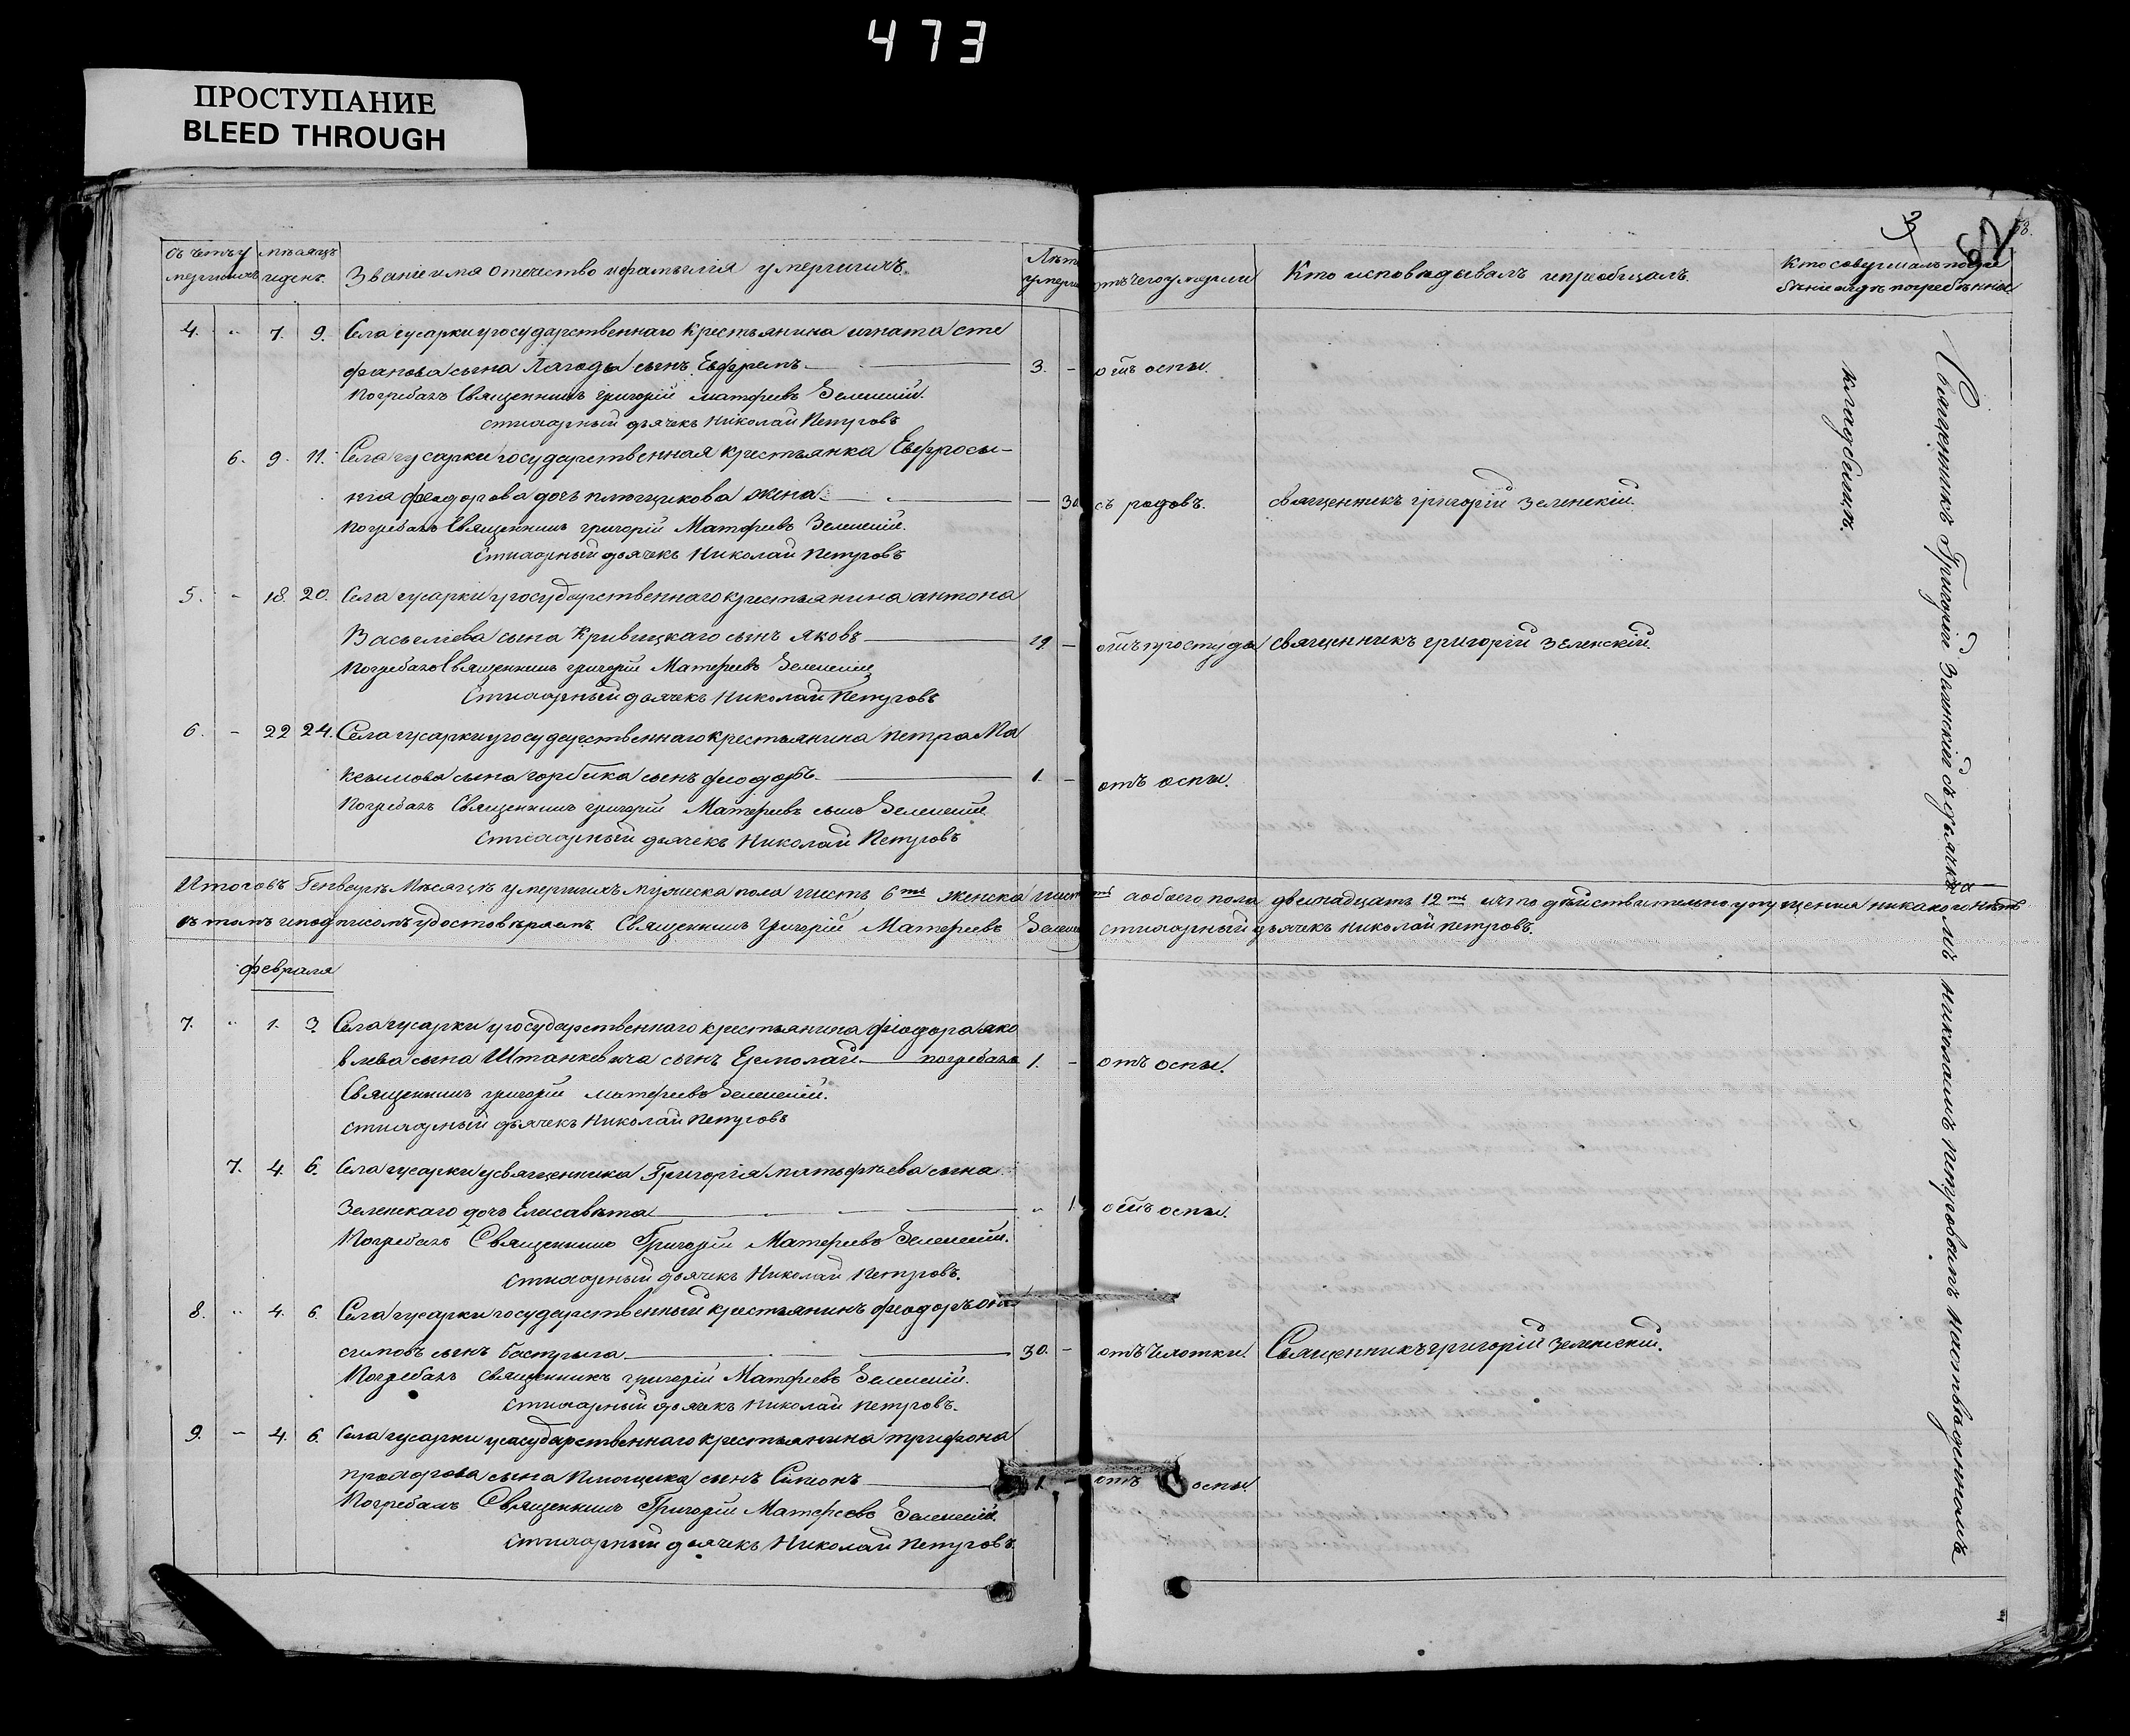 473
ПРОСТУПАНИЕ
BLEED THROUGH
3
Званіе имя отечество и фамылія умершихъ.
отъ чего умерли
Кто исповѣдывалъ и пріобщалъ.
4. 7. 9. Села гусарки у государственнаго крестьянина игната сте
фанова сына Лагоды сынъ Ефремъ 3. отъ оспы.
Погребалъ Священникъ григорій матфеевъ Зеленскій.
стихарный дьячекъ Николай Петровъ
6. 9. 11. Села гусарки государственная крестьянка Евфросы-
нія феодорова дочь плющикова жена 30 съ родовъ. священникъ григорій зеленскій.
Погребалъ Священникъ григорій Матфеевъ Зеленскій.
Стихарный дьячекъ Николай Петровъ
5. - 18. 20. Села гусарки у государственнаго крестьянина антона
Васьеліева сына Кривицкаго сынъ яковъ 19 - отъ простуды священникъ григорій зеленскій.
Погребалъ Священникъ григорій Матфеевъ Зеленскій
Стихарный дьячекъ Николай Петровъ
6. - 22 24. Села гусарки у государственнаго крестьянина петра Ма
ксымова сына горбика сынъ феодоръ 1. - отъ оспы.
Погребалъ Священникъ григорій Матфеевъ сынъ Зеленскій
Стихарный дьячекъ Николай Петровъ
Итого въ Генварѣ Мѣсяцѣ умершихъ мужеска пола шесть 6ть женска шесть а обоего пола двенадцать 12ть и что дѣйствительно упущенія никакого нѣтъ
въ томъ и подписомъ удостовѣряемъ Священникъ Григорій Матфеевъ Зеленскій стихарный дьячекъ николай петровъ.
февраля
7. 1. 3. Села гусарки у государственнаго крестьянина феодора яко
влева сына Штанкевича сынъ Ермолай погребалъ 1. - отъ оспы.
Священникъ григорій матфеевъ Зеленскій.
стихарный дьячекъ Николай Петровъ
7. 4. 6. Села гусарки у священника Григорія матьфѣева сына
Зеленскаго дочь Елисавѣта 1 отъ оспы.
Погребалъ Священникъ Григорій Матфеевъ Зеленскій.
стихарный дьячекъ Николай Петровъ.
8. 4. 6. Села гусарки государственный крестьянинъ феодоръ они
симовъ сынъ бастрыга 30. - отъ Чахотки. Священникъ григорій зеленскій.
Погребалъ священникъ григорій Матфеевъ Зеленскій.
стихарный дьячекъ Николай Петровъ.
9. - 4. 6. Села гусарки у государственнаго крестьянина трифона
сына Плющика сынъ Симонъ 1. - отъ оспы
Погребалъ Священникъ Григорій Матфеевъ Зеленскій.
стихарный дьячекъ Николай Петровъ.
Священникъ Григорій Зеленскій съ дьячкомъ николаемъ петровымъ на
кладбищѣ.